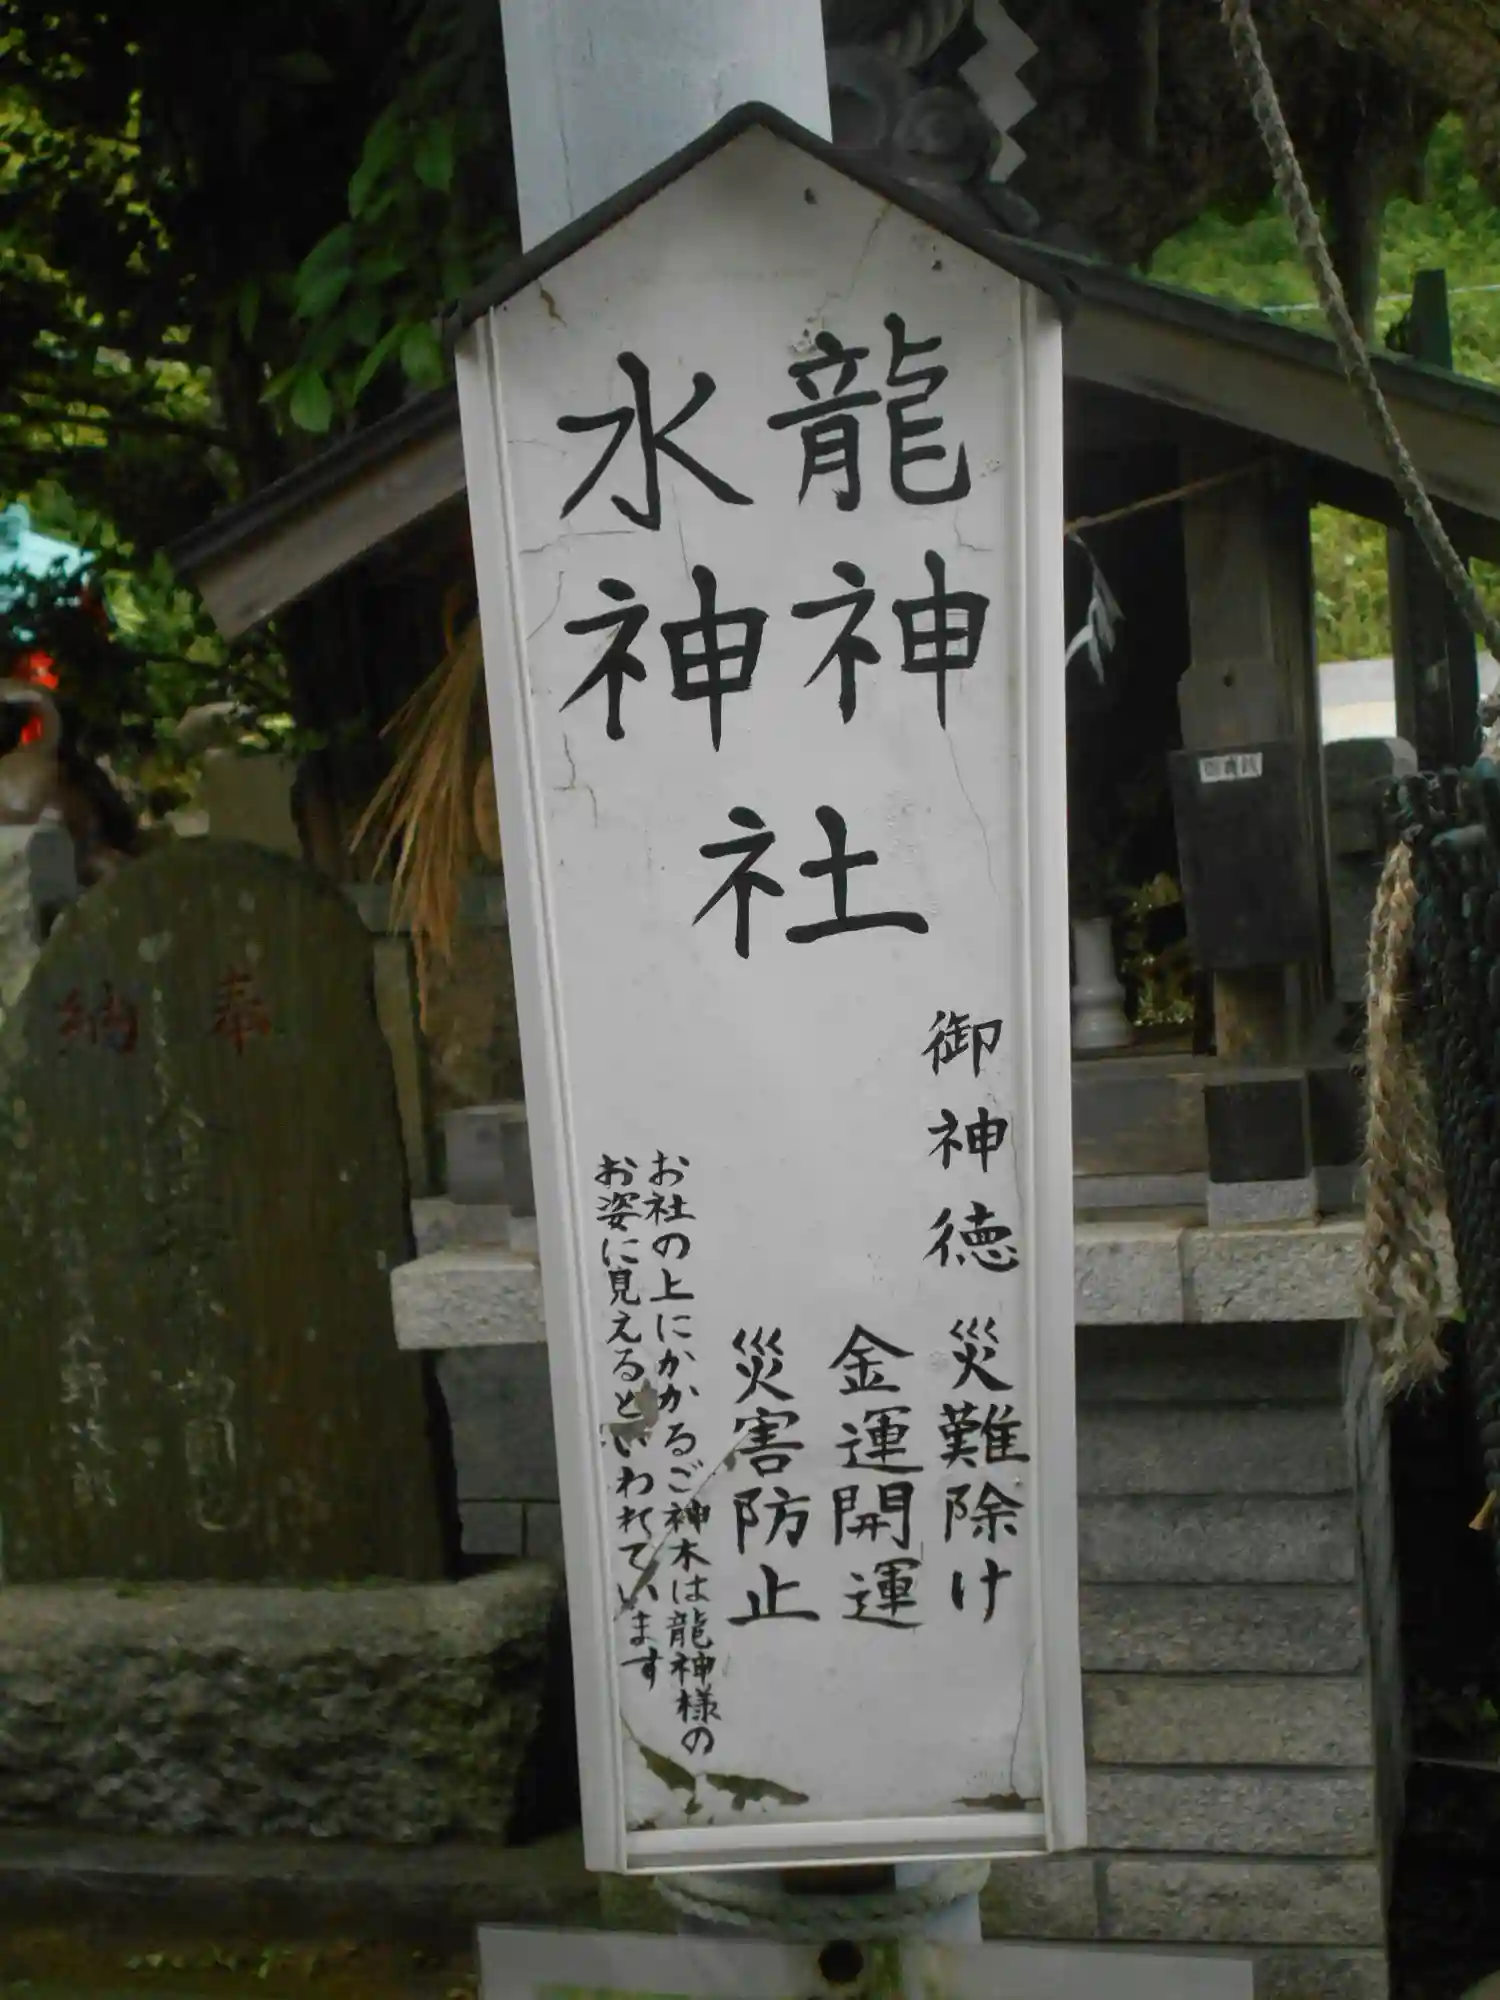 龍神
水神
社
御神徳
災難除け
金運開運
災害防止
お社の上にかかるご神木は龍神様の
お姿に見えるといわれています
奉納